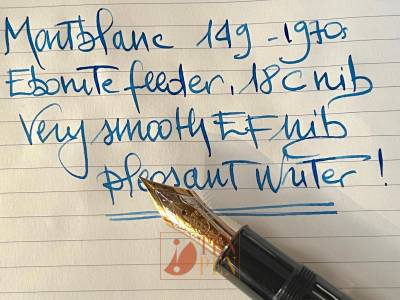 Montblanc 149 - 1970s
Ebonite feeder, 18C nib
Very smooth EF nib
pleasant writer!